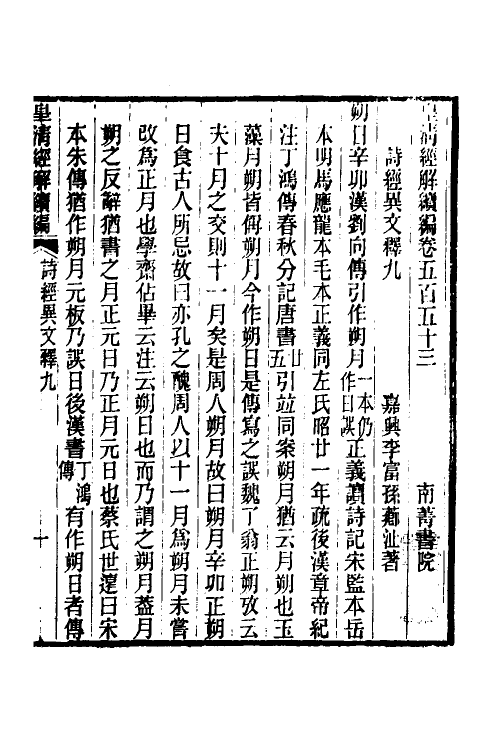 皇清經解續編卷五百五十三　南菁書院
詩經異文釋九　嘉興李富孫薌沚著
朔日辛卯漢劉向傳引作朔月一本仍作日誤正義讀詩記宋監本岳
本明馬應龍本毛本正義同左氏昭廿一年疏後漢章帝紀
注丁鴻傳春秋分記唐書廿五引竝同案朔月猶云月朔也玉
藻月朔皆偁朔月今作朔日是傳寫之誤魏了翁正朔攷云
夫十月之交則十一月矣是周人朔月故曰朔月辛卯正朔
日食古人所忌故曰亦孔之醜周人以十一月爲朔月未嘗
改爲正月也學齋佔畢云注云朔日也而乃謂之朔月蓋月
朔之反辭猶書之月正元日乃正月元日也蔡氏世遠曰宋
本朱傳猶作朔月元板乃誤日後漢書丁鴻傳有作朔日者傳
皇淸經解續編
詩經異文釋九
十